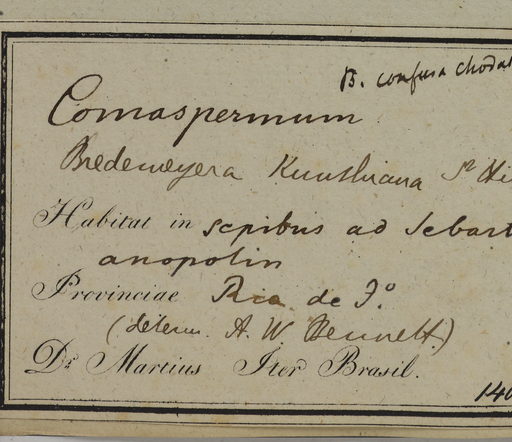 B. confusa Chodat
Comaspermum
Bredemeyera Kunthiana St Hi
Habitat in sepibus ad Sebast
anopolin
Provinciae Rio de J.o
(determ. A. W. Bennett.)
Dr. Martius Iter Brasil.
140